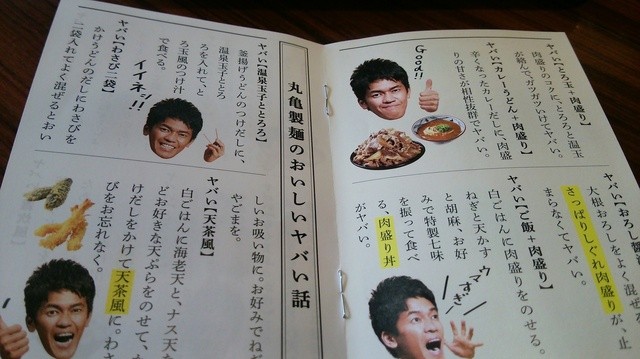 ヤバい【とろ玉+肉盛り】
肉盛りのコクに、とろろと温玉
が絡んでガツガツいけてヤバい。
ヤバい【カレーうどん+肉盛り】
辛くなったカレーだしに、肉盛
りの甘さが相性抜群でヤバい。
Good!!
ヤバい【おろし
大根おろしをよく混
さっぱりしぐれ肉盛りが、止
まらなくてヤバい。
ヤバい【ご飯+肉盛り】
白ごはんに肉盛りをのせる。
ねぎと天かす
と胡麻、お好
みで特製七味
を振って食べ
る、肉盛り丼
がヤバい。
ウマすぎ!
丸亀製麺のおいしいヤバい話
ヤバい【温泉玉子ととろろ】
釜揚げうどんのつけだしに、
温泉玉子ととろ
ろを入れて、と
ろ玉風のつけ汁
で食べる。
イイネッ!!
ヤバい【わさび二袋】
かけうどんのだしにわさびを
二袋入れてよく混ぜるとおい
しいお吸い物に。お好みでね
やごまを。
ヤバい【天茶風】
白ごはんに海老天と、ナス天
どお好きな天ぷらをのせて、か
けだしをかけて天茶風に。わさ
びをお忘れなく。